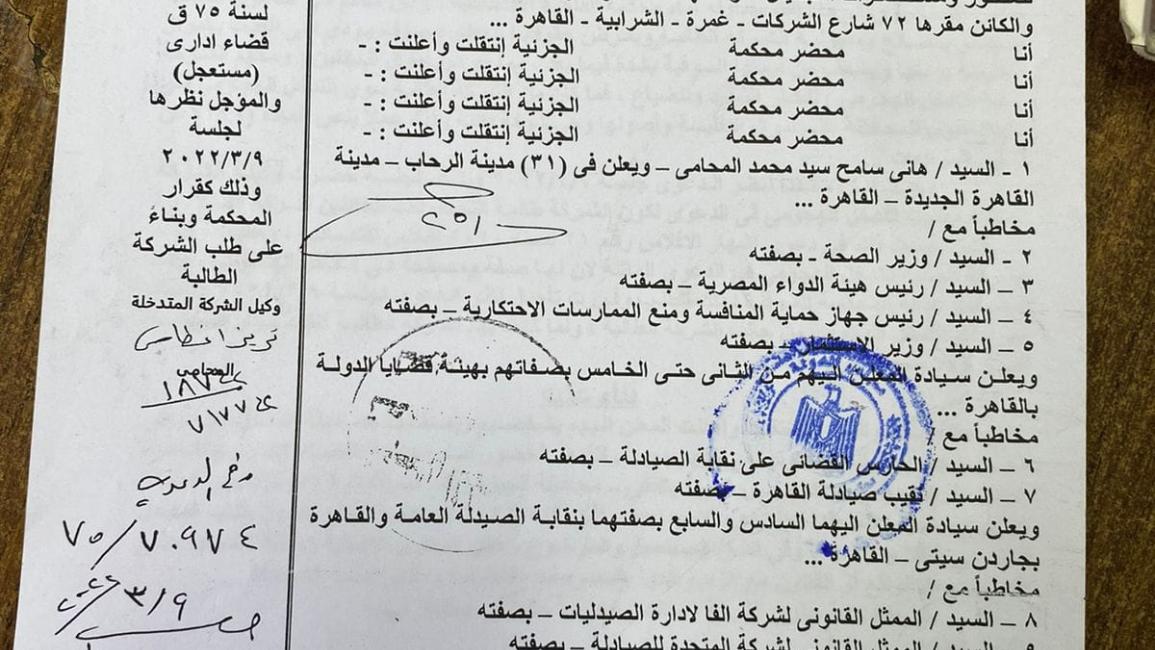 والكائن مقرها ٧٢ شارع الشركات - غمرة - الشرابية - القاهرة ...
أنا محضر محكمة الجزئية إنتقلت وأعلنت : -
أنا محضر محكمة الجزئية إنتقلت وأعلنت : -
أنا محضر محكمة الجزئية إنتقلت وأعلنت : -
أنا محضر محكمة الجزئية إنتقلت وأعلنت : -
١ - السيد / هانى سامح سيد محمد المحامى – ويعلن فى (٣١) مدينة الرحاب – مدينة
القاهرة الجديدة – القاهرة ...
مخاطباً مع /
٢ - السيد / وزير الصحة - بصفته
٣ – السيد / رئيس هيئة الدواء المصرية – بصفته
٤ – السيد / رئيس جهاز حماية المنافسة ومنع الممارسات الاحتكارية – بصفته
٥ – السيد / وزير الاستثمار – بصفته
ويعلن سيادة المعلن اليهم من الثانى حتى الخامس بصفاتهم بهيئة قضايا الدولة
بالقاهرة ...
مخاطباً مع /
٦ – السيد / الحارس القضائى على نقابة الصيادلة – بصفته
٧ – السيد / نقيب صيادلة القاهرة – بصفته
ويعلن سيادة المعلن اليهما السادس والسابع بصفتهما بنقابة الصيدلة العامة والقاهرة
بجاردن سيتى – القاهرة ...
مخاطباً مع /
٨ – السيد / الممثل القانونى لشركة الفا لادارة الصيدليات – بصفته
٩ – السيد / الممثل القانونى لشركة المتحدة للصيادلة – بصفته
لسنة ٧٥ ق
قضاء ادارى
(مستعجل)
والموجل نظرها
لجلسة
٢٠٢٢/٣/٩
وذلك كقرار
المحكمة وبناءً
على طلب الشركة
الطالبة
وكيل الشركة المتدخلة
المحامى
٧٠٩٧٤/٧٥
٣/٩